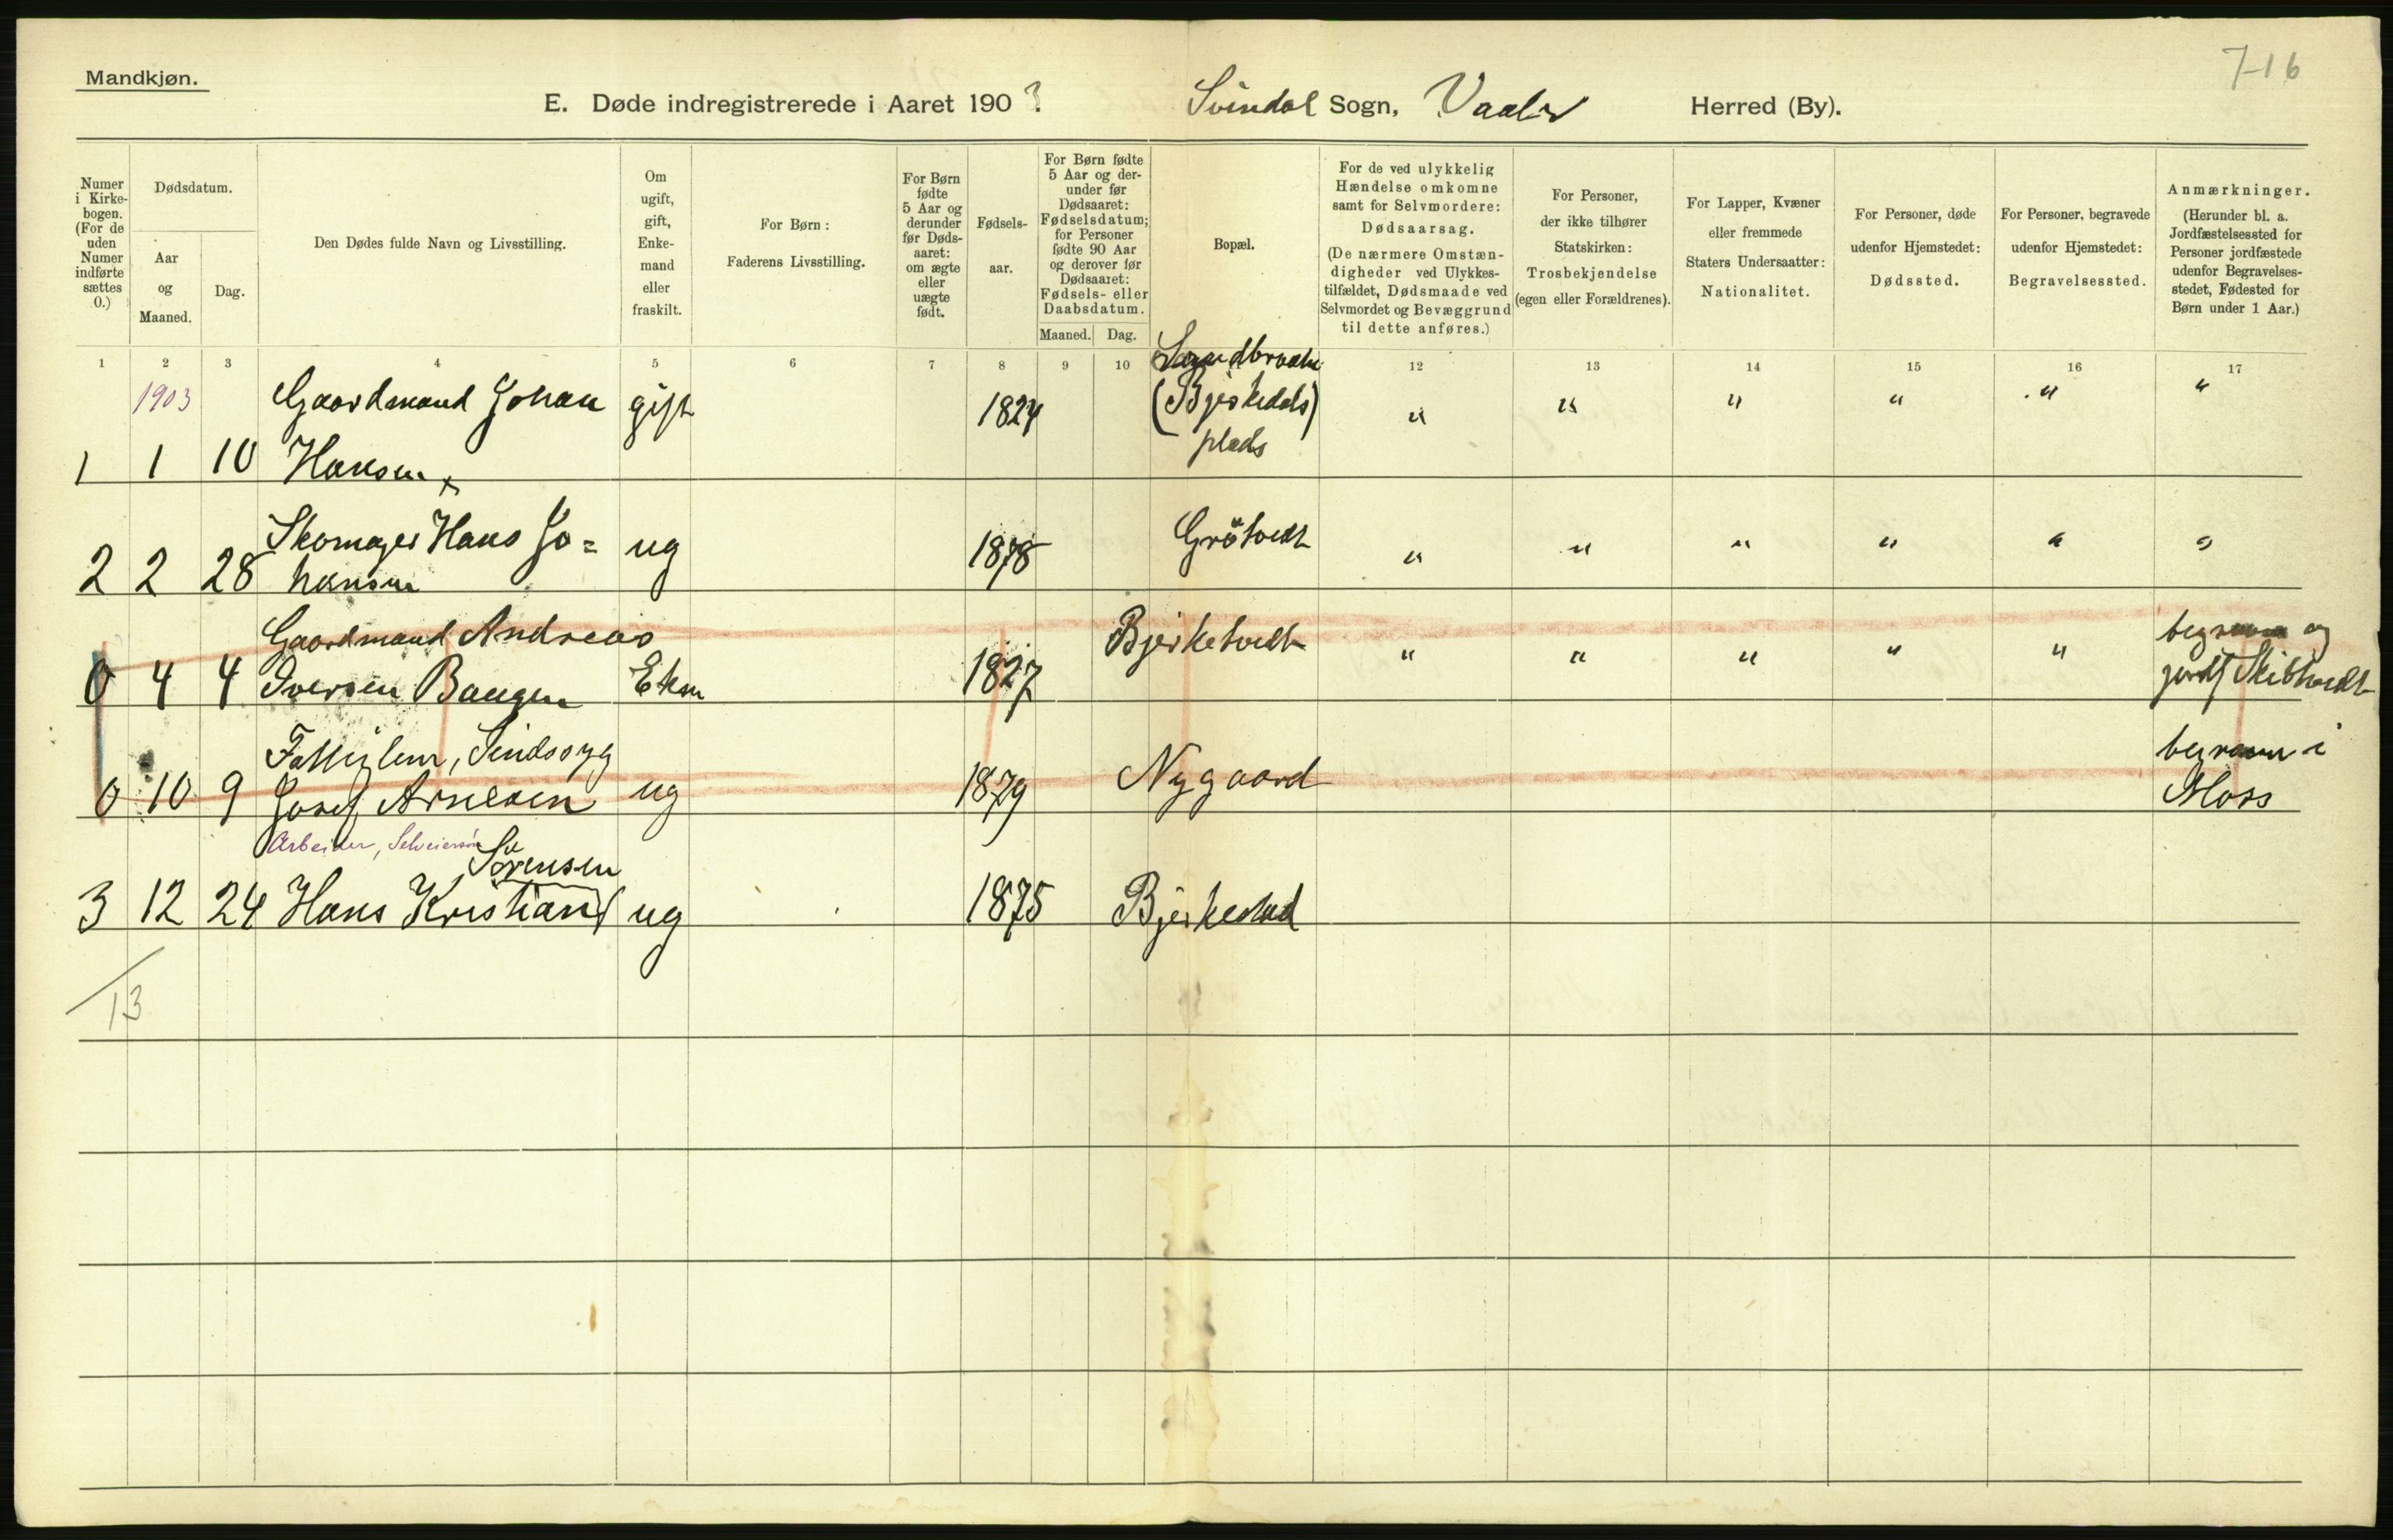 7-16
Mandkjøn.
E. Døde indregistrerede i Aaret 1903. Svindal Sogn, Vaaler Herred (By).
Numer i Kirkebogen. (For de uden Numer indførte sættes 0.)
Dødsdatum.
Aar og Maaned.
Dag.
Den Dødes fulde Navn og Livsstilling.
Om ugift, gift, Enkemand eller fraskilt.
For Børn: Faderens Livsstilling.
For Børn fødte 5 Aar og derunder før Dødsaaret: om ægte eller uægte født.
Fødselsaar.
For Børn fødte 5 Aar og derunder før Dødsaaret: Fødselsdatum; for Personer fødte 90 Aar og derover før Dødsaaret: Fødsels- eller Daabsdatum.
Maaned. Dag.
Bopæl.
For de ved ulykkelig Hændelse omkomne samt for Selvmordere: Dødsaarsag. (De nærmere Omstændigheder ved Ulykkestilfældet, Dødsmaade ved Selvmordet og Bevæggrund til dette anføres.)
For Personer, der ikke tilhører Statskirken: Trosbekjendelse (egen eller Forældrenes).
For Lapper, Kvæner eller fremmede Staters Undersaatter: Nationalitet.
For Personer, døde udenfor Hjemstedet: Dødssted.
For Personer, begravede udenfor Hjemstedet: Begravelsessted.
Anmærkninger. (Herunder bl. a. Jordfæstelsessted for Personer jordfæstede udenfor Begravelsesstedet, Fødested for Børn under 1 Aar.)
1 2 3 4 5 6 7 8 9 10 12 13 14 15 16 17
1903 Gaardmand Johan gift 1824 (Bjerkedals) " " " " " "
1 1 10 Hansen x plads
Skomager Hans Jo= ug 1878 Grötvedt " " " " " "
2 2 28 hansen
Gaardmand Andreas Bjerketvedt " " " " " begraven og
0 4 4 Iversen Baugen Ekm 1827 jordf Skibtvedt
Fattiglem, Sindssyg begraven i
0 10 9 Josef Arnesen ug 1879 Nygaard Moss
Arbeider, Selveiersøn
Sørensen
3 12 24 Hans Kristian ug 1875 Bjerkestad
/13